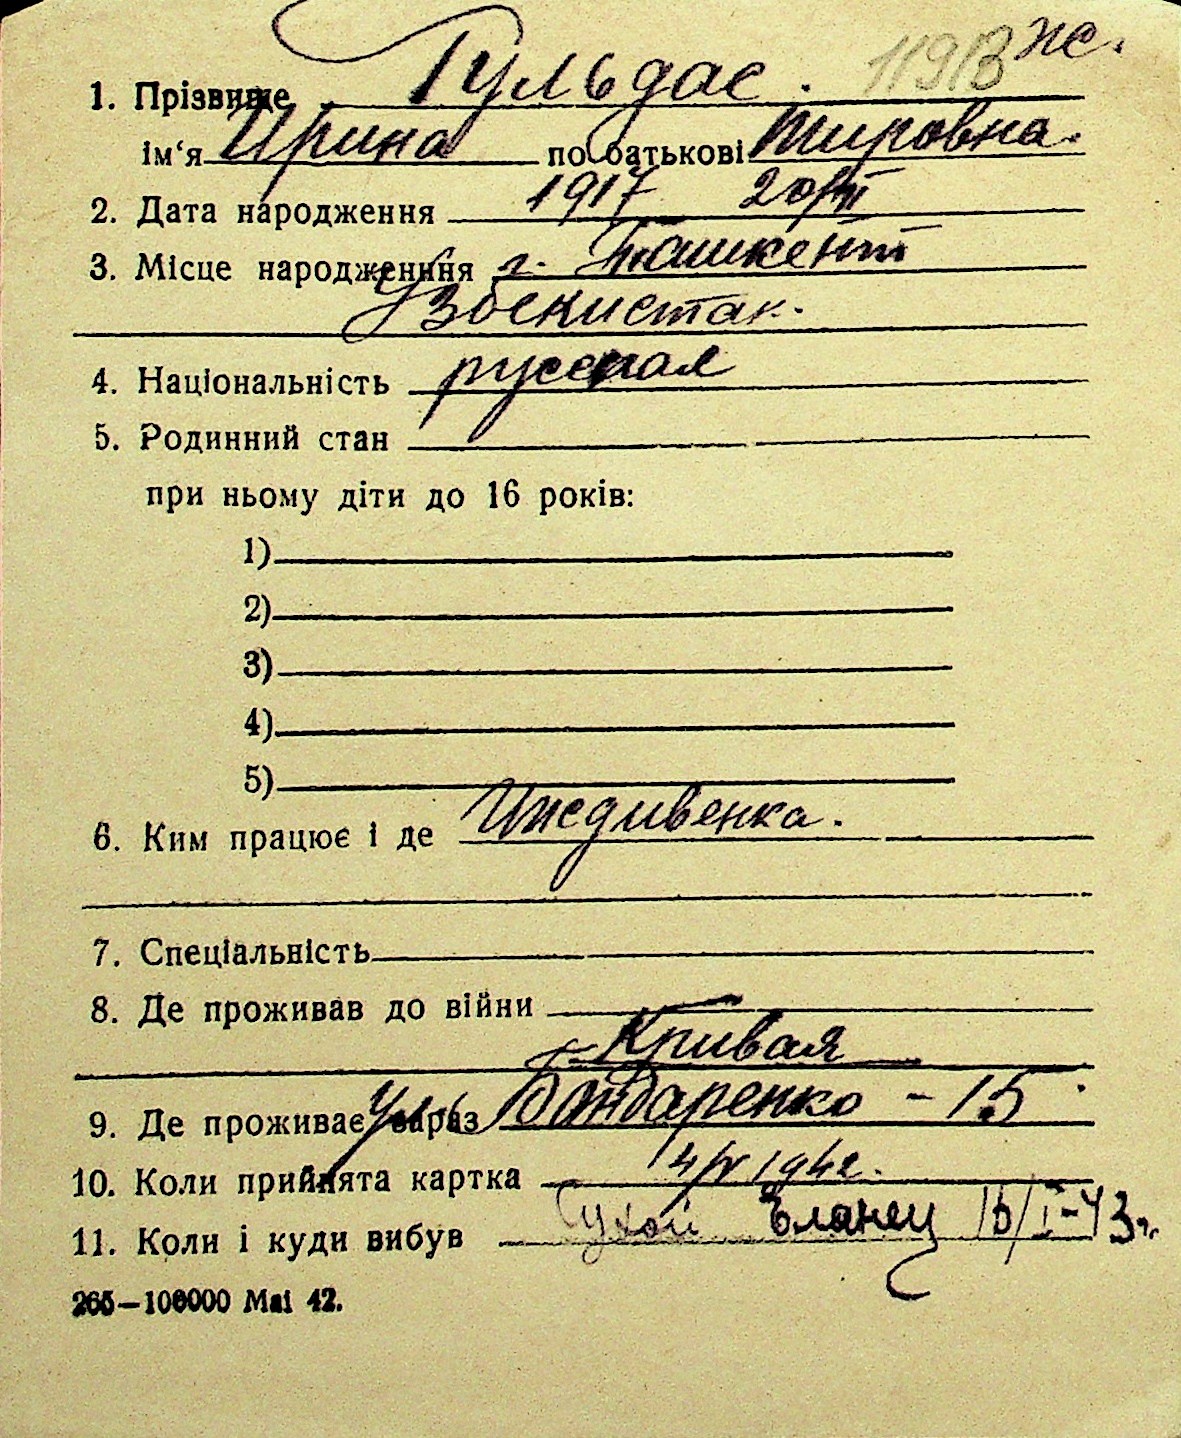 11913 ж.
1. Прізвище Гульдас.
ім'я Ирина по батькові Тировна.
2. Дата народження 1917 20/VII
3. Місце народження г. Ташкент
Узбекистан.
4. Національність русская
5. Родинний стан
при ньому діти до 16 років:
1)
2)
3)
4)
5)
6. Ким працює і де Иждивенка.
7. Спеціальність
8. Де проживав до війни
Кривая
9. Де проживає зараз Бондаренко - 15
10. Коли прийнята картка 14/V 1942.
11. Коли і куди вибув Сухой Еланец 15/I-43 г.
265—100000 Mai 42.